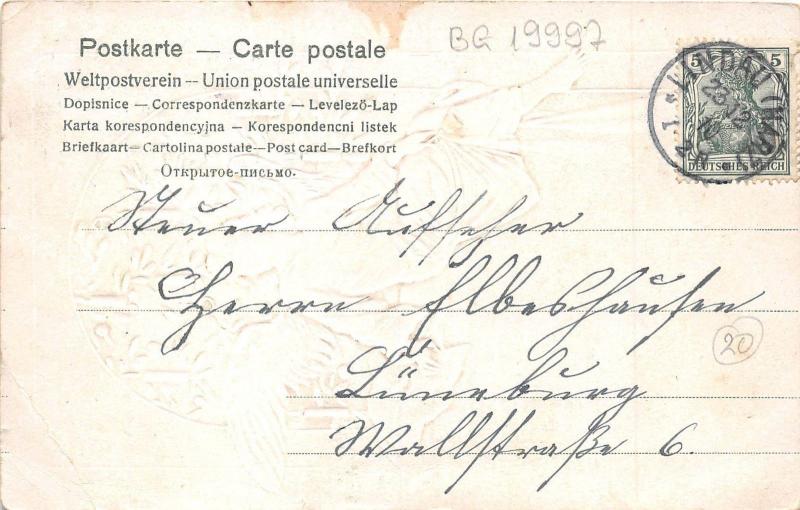 BG 19997
Postkarte — Carte postale
Weltpostverein — Union postale universelle
Dopisnice — Correspondenzkarte — Levelező-Lap
Karta korespondencyjna — Korespondencni listek
Briefkaart — Cartolina postale — Post card — Brefkort
Открытое-письмо.
5 5
DEUTSCHES REICH
LANDAU (PFALZ)
Steuer Aufseher
Herrn Elbeshausen
Lüneburg
Wallstraße 6.
20